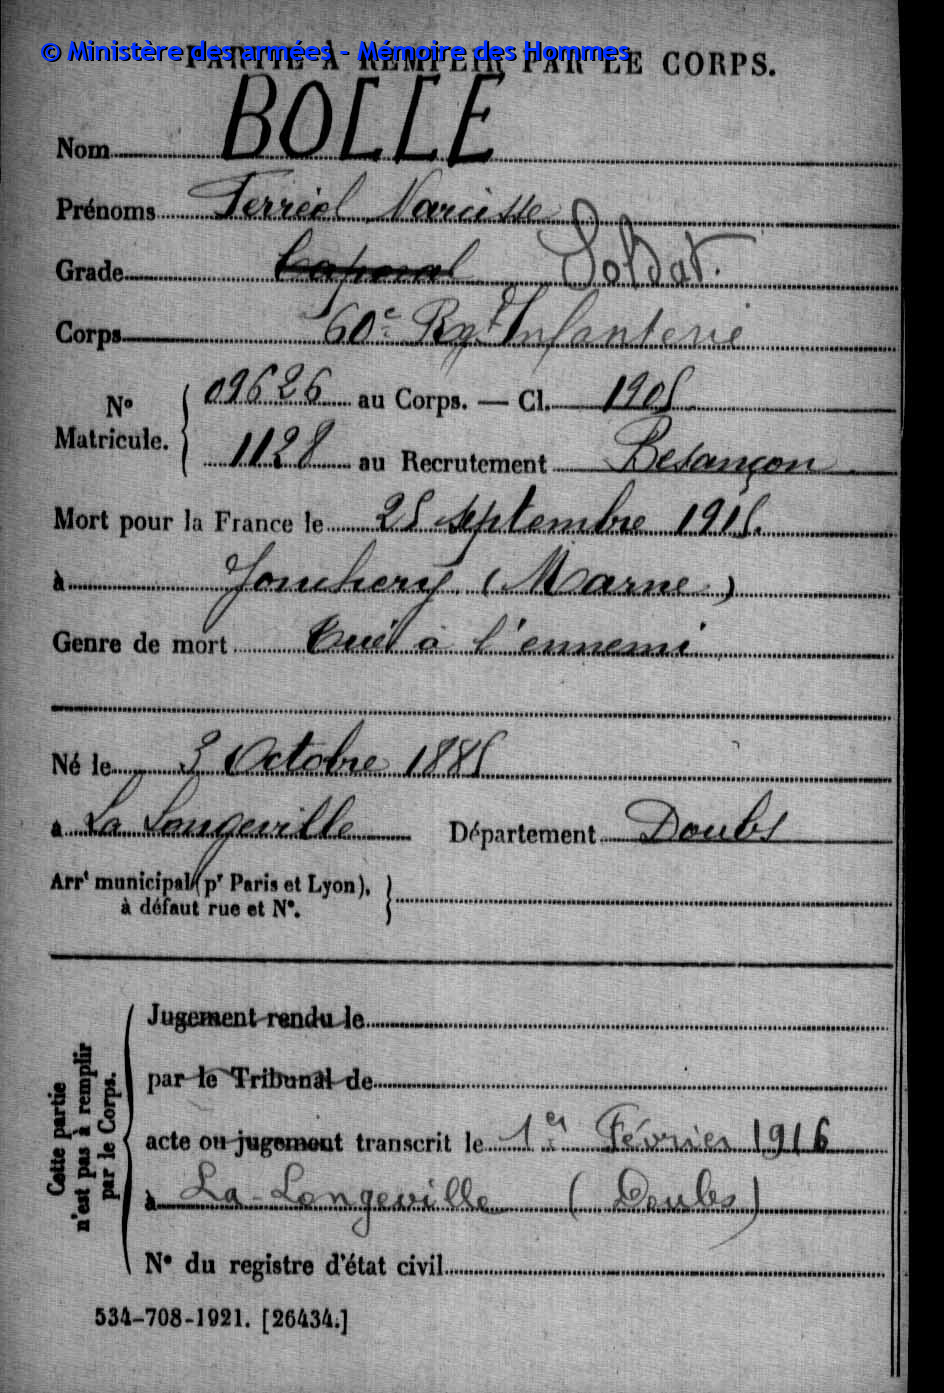 © Ministère des armées - Mémoire des Hommes
PARTIE À REMPLIR PAR LE CORPS.
Nom BOLLE
Prénoms Ferréol Narcisse
Grade Caporal Soldat.
Corps 60e Rgt d'Infanterie
N° Matricule.
09626 au Corps. — Cl. 1905
1128 au Recrutement Besançon
Mort pour la France le 25 septembre 1915.
à Jonchery (Marne)
Genre de mort Tué à l'ennemi
Né le 3 Octobre 1885
à La Longeville Département Doubs
Arrt municipal (pr Paris et Lyon),
à défaut rue et N°.
Cette partie
n'est pas à remplir
par le Corps.
Jugement rendu le
par le Tribunal de
acte ou jugement transcrit le 1er Février 1916
à La-Longeville (Doubs)
N° du registre d'état civil
534-708-1921. [26434.]